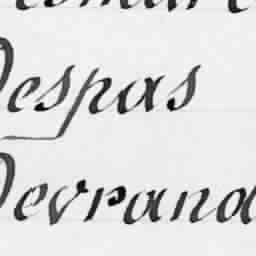 Despas
Devrand